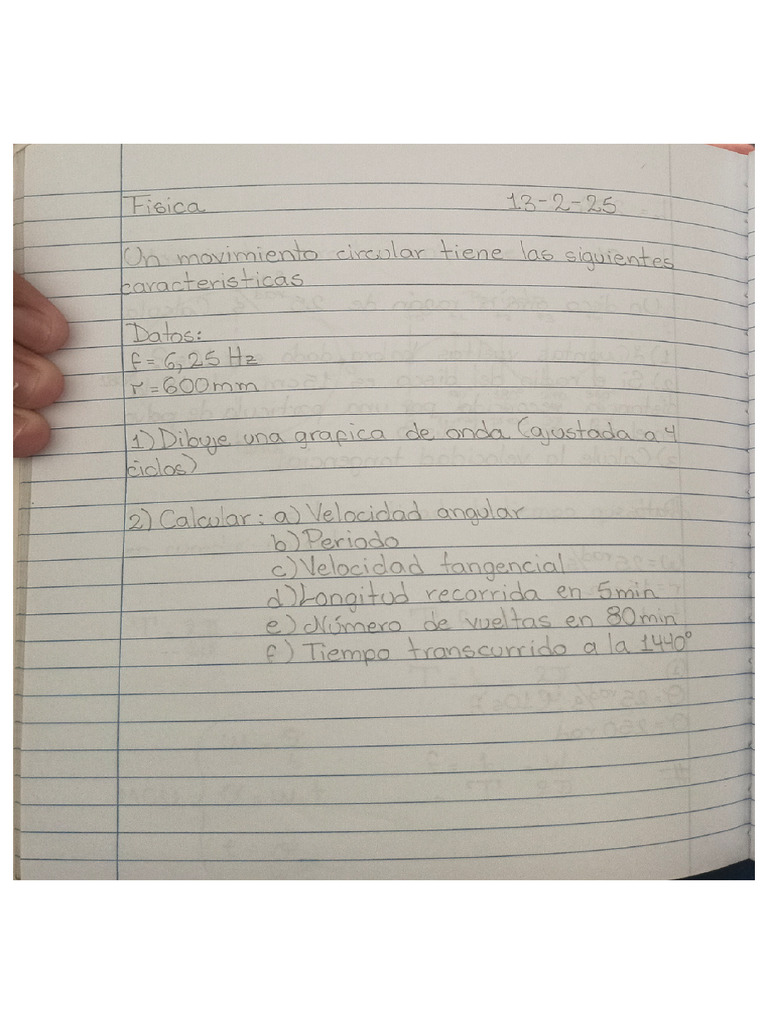 Fisica 13-2-25
Un movimiento circular tiene las siguientes
caracteristicas
Datos:
f = 6,25 Hz
r = 600mm
1) Dibuje una grafica de onda (ajustada a 4
ciclos)
2) Calcular: a) Velocidad angular
b) Periodo
c) Velocidad tangencial
d) Longitud recorrida en 5min
e) Número de vueltas en 80min
f) Tiempo transcurrido a la 1440°